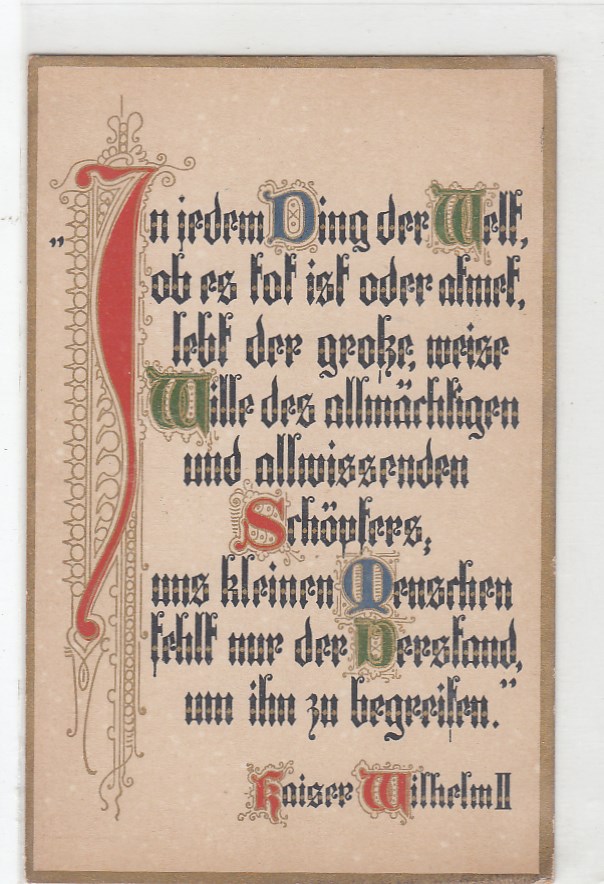 „In jedem Ding der Welt,
ob es tot ist oder atmet,
lebt der große, weise
Wille des allmächtigen
und allwissenden
Schöpfers,
uns kleinen Menschen
fehlt nur der Verstand,
um ihn zu begreifen.”
Kaiser Wilhelm II